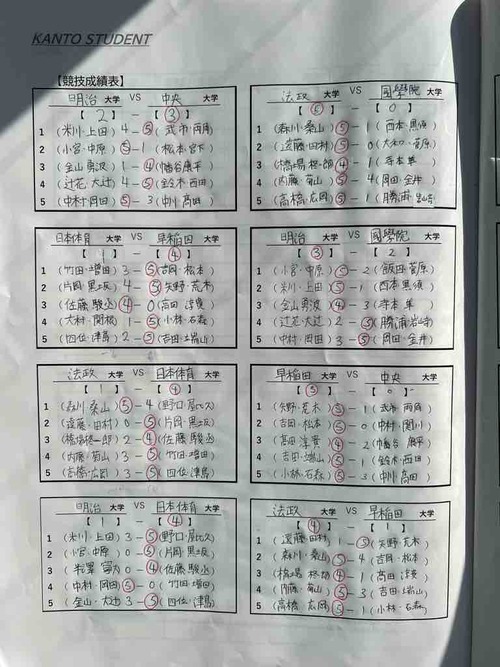 KANTO STUDENT
【競技成績表】
明治 大学 VS 中央 大学
【 2 】 - 【 ③ 】
1 (米川・上田) 4 - ⑤ (武市・両角)
2 (小宮・中原) ⑤ - 1 (松本・宮下)
3 (金山勇波) 1 - ④ (幡谷康平)
4 (辻花・大辻) 4 - ⑤ (鈴木・西田)
5 (中村・岡田) ⑤ - 3 (中川・高田)
法政 大学 VS 國學院 大学
【 ⑤ 】 - 【 0 】
1 (森川・桑山) ⑤ - 1 (西本・黒須)
2 (遠藤・田村) ⑤ - 0 (菅原)
3 (橋場柊一郎) ④ - 1 (寺本隼)
4 (内藤・菊山) ⑤ - 4 (岡田・金井)
5 (高橋・広岡) ⑤ - 1 (勝浦・岩崎)
日本体育 大学 VS 早稲田 大学
【 1 】 - 【 ④ 】
1 (竹田・増田) 3 - ⑤ (吉岡・松本)
2 (片岡・黒坂) 4 - ⑤ (矢野・荒木)
3 (佐藤駿丞) ④ - 0 (高田淳貴)
4 (大村・関根) 1 - ⑤ (小林・石森)
5 (四位・津島) 2 - ⑤ (吉田・端山)
明治 大学 VS 國學院 大学
【 ③ 】 - 【 2 】
1 (小宮・中原) ⑤ - 2 (飯田・菅原)
2 (米川・上田) ⑤ - 1 (西本・黒須)
3 (金山勇波) ④ - 3 (寺本隼)
4 (辻花・大辻) 2 - ⑤ (勝浦・岩崎)
5 (中村・岡田) 3 - ⑤ (岡田・金井)
法政 大学 VS 日本体育 大学
【 1 】 - 【 ④ 】
1 (森川・桑山) ⑤ - 4 (野口・屋比久)
2 (遠藤・田村) 0 - ⑤ (片岡・黒坂)
3 (橋場柊一郎) 2 - ④ (佐藤駿丞)
4 (内藤・菊山) 3 - ⑤ (竹田・増田)
5 (高橋・広岡) 3 - ⑤ (四位・津島)
早稲田 大学 VS 中央 大学
【 ⑤ 】 - 【 0 】
1 (矢野・荒木) ⑤ - 1 (武市・両角)
2 (吉岡・松本) ⑤ - 0 (中村・関川)
3 (高田淳貴) ④ - 2 (幡谷康平)
4 (吉田・端山) ⑤ - 1 (鈴木・西田)
5 (小林・石森) ⑤ - 3 (中川・高田)
明治 大学 VS 日本体育 大学
【 1 】 - 【 ④ 】
1 (米川・上田) 3 - ⑤ (野口・屋比久)
2 (小宮・中原) 0 - ⑤ (片岡・黒坂)
3 0 - ④ (佐藤駿丞)
4 (中村・岡田) ⑤ - 0 (竹田・増田)
5 (金山・大辻) 3 - ⑤ (四位・津島)
法政 大学 VS 早稲田 大学
【 ④ 】 - 【 1 】
1 (遠藤・田村) 1 - ⑤ (矢野・荒木)
2 (森川・桑山) ⑤ - 4 (吉岡・松本)
3 (橋場柊一郎) ④ - 1 (高田淳貴)
4 (内藤・菊山) ⑤ - 3 (吉田・端山)
5 (高橋・広岡) ⑤ - 1 (小林・石森)